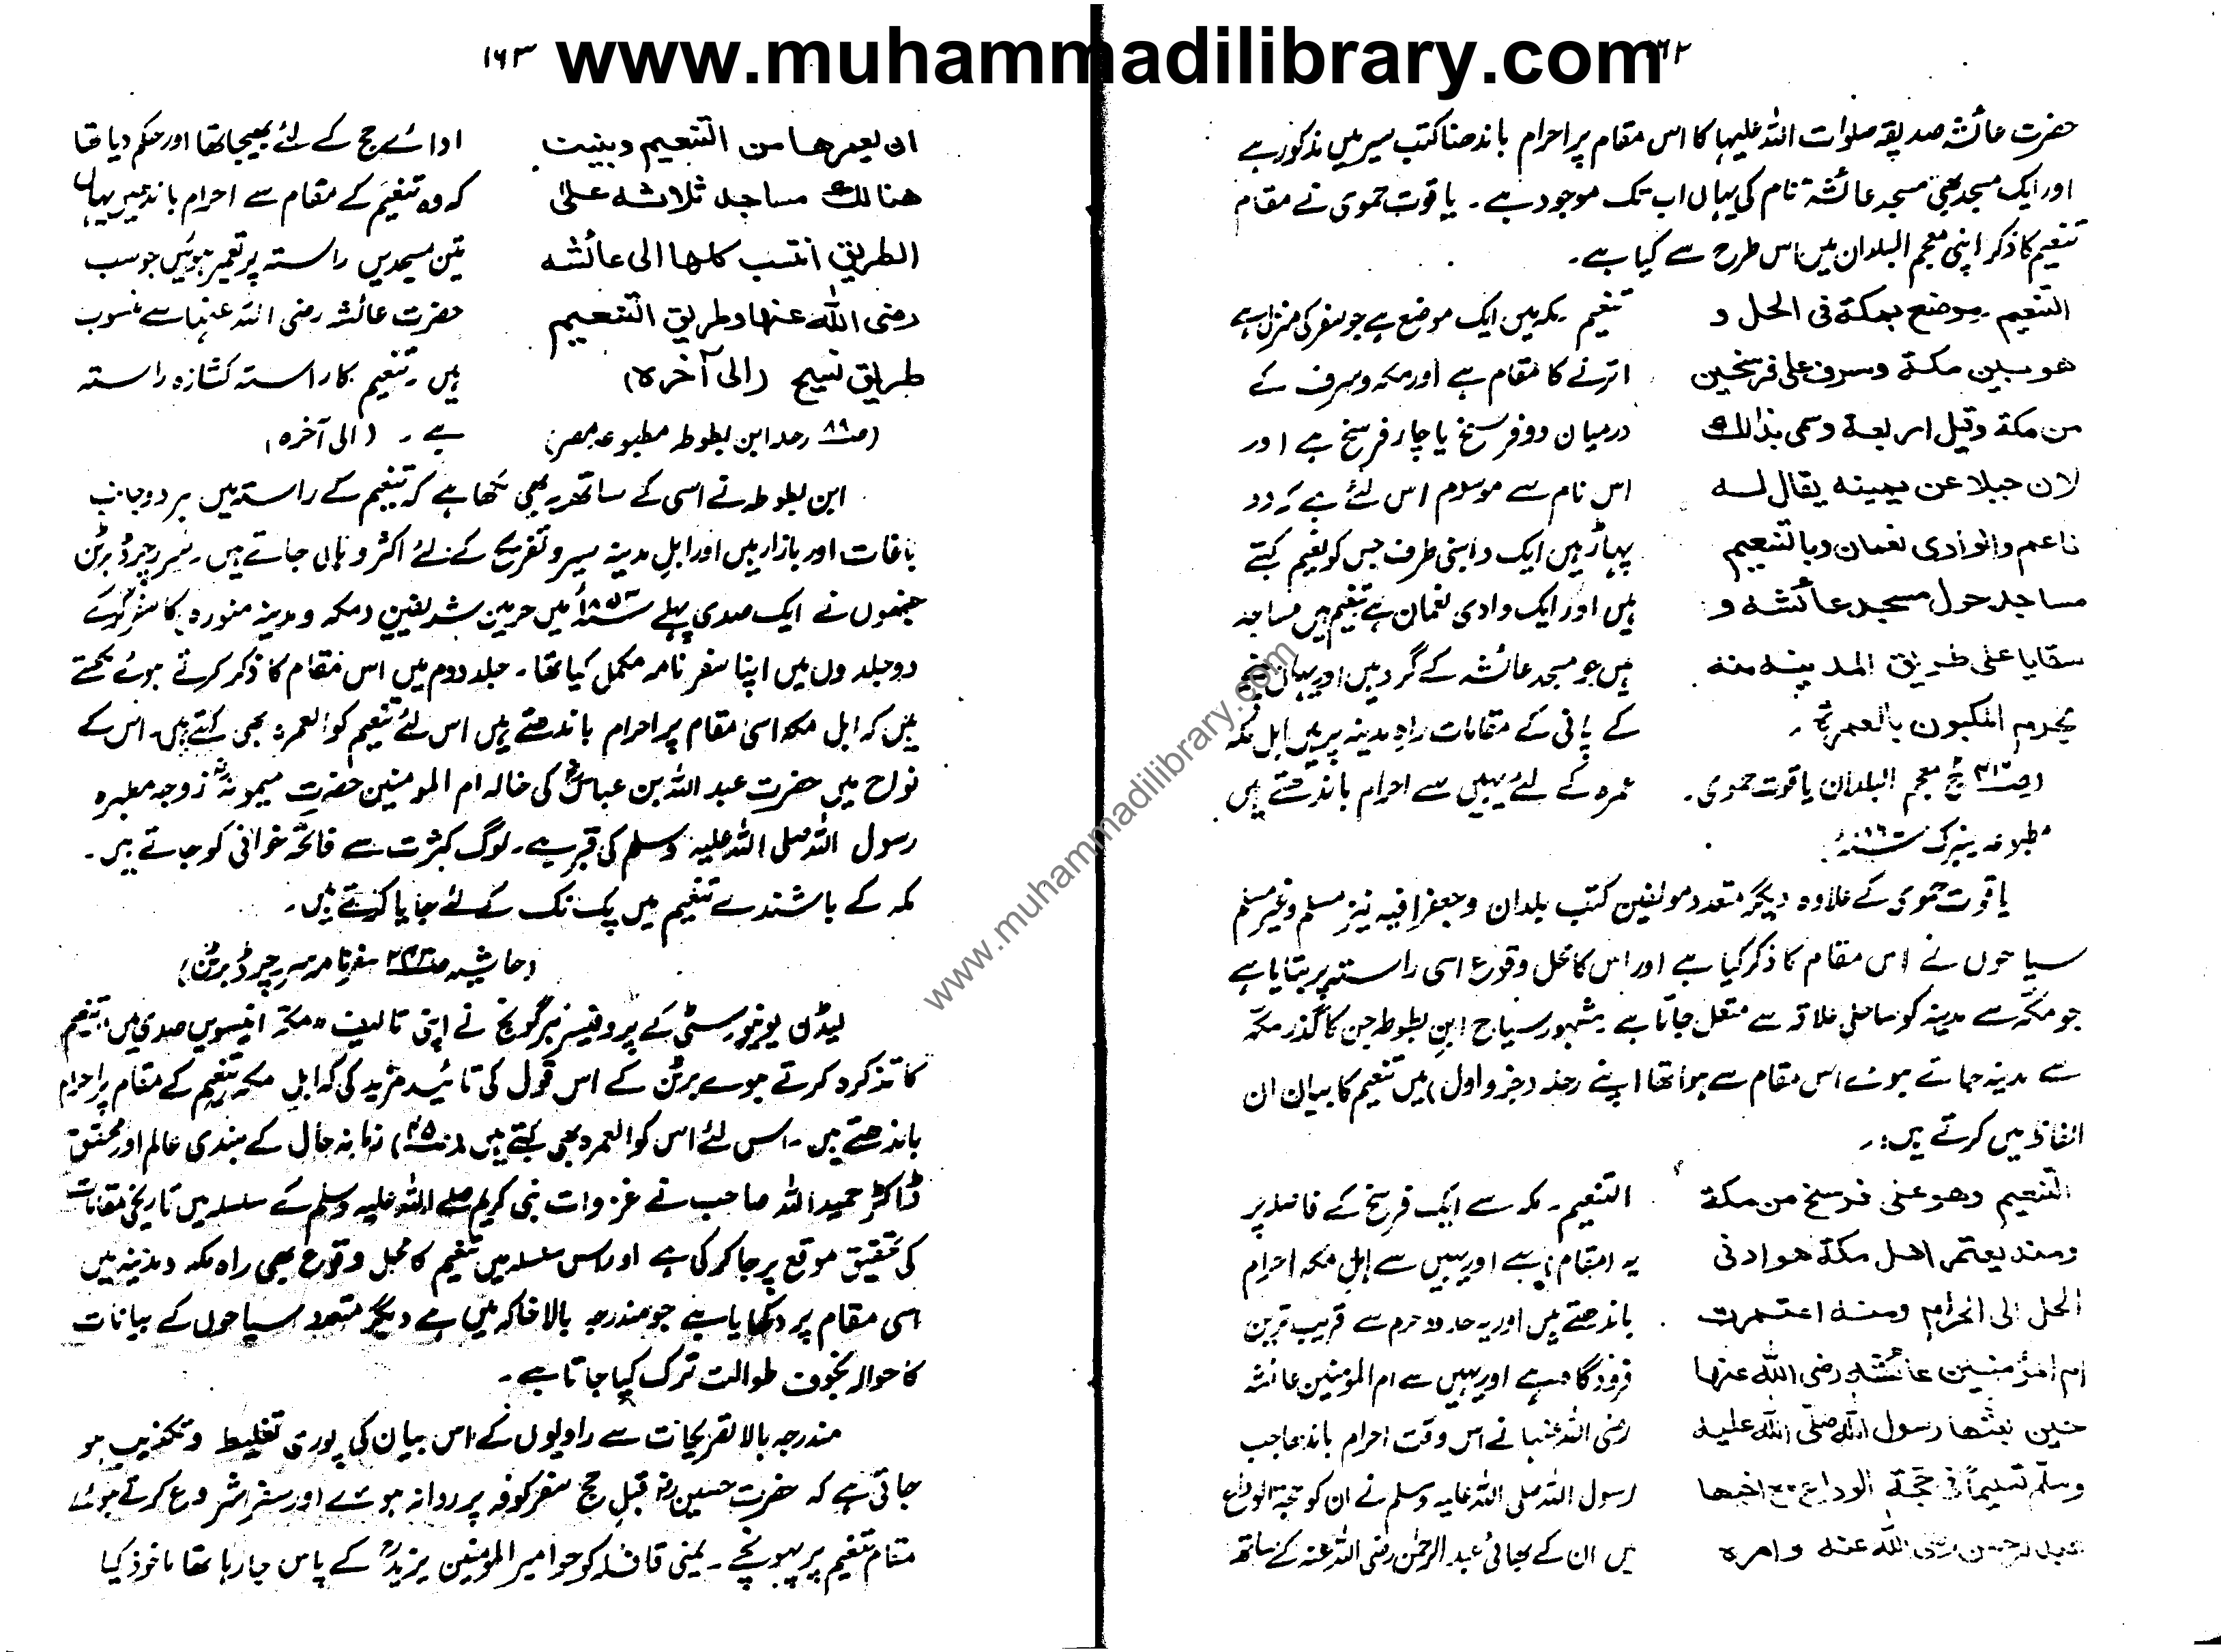 www.muhammadilibrary.com
۱۶۲
حضرت عائشہ صدیقہ صلوات اللہ علیہا کا اس مقام پر احرام باندھنا کتب سیر میں مذکور ہے
اور ایک مسجد بھی مسجد عائشہ نام کی یہاں اب تک موجود ہے۔ یاقوت حموی نے مقام
تنعیم کا ذکر اپنی معجم البلدان میں اس طرح سے کیا ہے۔
التنعیم۔ موضع بمکۃ فی الحل و
ھو بین مکۃ وسرف علی فرسخین
من مکۃ وقیل اربعۃ وسمی بذالک
لان جبلا عن یمینہ یقال لہ
ناعم والوادی نعمان وبالتنعیم
مساجد حول مسجد عائشہ و
سقایا علی طریق المدینہ منہ
یحرم المکیون بالعمرۃ۔
معجم البلدان یاقوت حموی۔
تنعیم۔ مکہ میں ایک موضع ہے جو سفر کی منزل ہے
اترنے کا مقام ہے اور مکہ و سرف کے
درمیان دو فرسخ یا چار فرسخ ہے اور
اس نام سے موسوم اس لئے ہے کہ دو
پہاڑ ہیں ایک داہنی طرف جس کو نعیم کہتے
ہیں اور ایک وادی نعمان ہے تنعیم میں مساجد
ہیں جو مسجد عائشہ کے گرد ہیں اور یہاں
کے پانی کے مقامات راہ مدینہ پر ہیں اہل مکہ
عمرہ کے لئے یہیں سے احرام باندھتے ہیں
یاقوت حموی کے علاوہ دیگر متعدد مولفین کتب بلدان و جغرافیہ نیز مسلم و غیر مسلم
سیاحوں نے اس مقام کا ذکر کیا ہے اور اس کا محل وقوع اسی راستہ پر بتایا ہے
جو مکہ سے مدینہ کو ساحلی علاقہ سے متصل جاتا ہے۔ مشہور سیاح ابن بطوطہ جن کا گذر مکہ
سے مدینہ جاتے ہوئے اس مقام سے ہوا تھا اپنے رحلہ (جزو اول) میں تنعیم کا بیان ان
الفاظ میں کرتے ہیں:۔
التنعیم وھو علی فرسخ من مکۃ
ومنہ یعتمر اھل مکۃ ھو ادنی
الحل الی الحرام ومنہ اعتمرت
ام المؤمنین عائشہ رضی اللہ عنہا
حین بعثھا رسول اللہ صلی اللہ علیہ
وسلم تسلیماً فی حجۃ الوداع مع اخیھا
عبدالرحمن رضی اللہ عنہ وامرہ
التنعیم۔ مکہ سے ایک فرسخ کے فاصلہ پر
یہ (مقام) ہے اور یہیں سے اہل مکہ احرام
باندھتے ہیں اور یہ حدود حرم سے قریب ترین
فرودگاہ ہے اور یہیں سے ام المومنین عائشہ
رضی اللہ عنہا نے اس وقت احرام باندھا جب
رسول اللہ صلی اللہ علیہ وسلم نے ان کو حجۃ الوداع
میں ان کے بھائی عبدالرحمن رضی اللہ عنہ کے ساتھ
۱۶۳
ان یعمرھا من التنعیم وبنیت
ھنالک مساجد ثلاثہ علی
الطریق انتسب کلھا الی عائشہ
رضی اللہ عنہا وطریق التنعیم
طریق فسیح (الی آخرہ)
رحلہ ابن بطوطہ مطبوعہ مصر)
ادائے حج کے لئے بھیجا تھا اور حکم دیا تھا
کہ وہ تنعیم کے مقام سے احرام باندھیں یہاں
تین مسجدیں راستہ پر تعمیر ہوئیں جو سب
حضرت عائشہ رضی اللہ عنہا سے منسوب
ہیں۔ تنعیم کا راستہ کشادہ راستہ
ہے۔ (الی آخرہ)
ابن بطوطہ نے اسی کے ساتھ یہ بھی لکھا ہے کہ تنعیم کے راستہ میں ہر دو جانب
باغات اور بازار ہیں اور اہل مدینہ سیر و تفریح کے لئے اکثر وہاں جاتے ہیں۔ سر رچرڈ برٹن
جنھوں نے ایک صدی پہلے میں حرمین شریفین (مکہ و مدینہ منورہ) کا سفر کر کے
دو جلدوں میں اپنا سفر نامہ مکمل کیا تھا۔ جلد دوم میں اس مقام کا ذکر کرتے ہوئے لکھتے
ہیں کہ اہل مکہ اسی مقام پر احرام باندھتے ہیں اس لئے تنعیم کو العمرہ بھی کہتے ہیں۔ اس کے
نواح میں حضرت عبداللہ بن عباسؓ کی خالہ ام المومنین حضرت میمونہؓ زوجہ مطہرہ
رسول اللہ صلی اللہ علیہ وسلم کی قبر ہے۔ لوگ کثرت سے فاتحہ خوانی کو جاتے ہیں۔
مکہ کے باشندے تنعیم میں پک نک کے لئے جایا کرتے ہیں۔
(حاشیہ سفرنامہ سر رچرڈ برٹن)
لیڈن یونیورسٹی کے پروفیسر ہرگرونج نے اپنی تالیف "مکہ انیسویں صدی میں" تنعیم
کا تذکرہ کرتے ہوئے برٹن کے اس قول کی تائید مزید کی کہ اہل مکہ تنعیم کے مقام پر احرام
باندھتے ہیں۔ اس لئے اس کو العمرہ بھی کہتے ہیں زمانہ حال کے ہندی عالم اور محقق
ڈاکٹر حمید اللہ صاحب نے غزوات نبی کریم صلی اللہ علیہ وسلم کے سلسلہ میں تاریخی مقامات
کی تحقیق موقع پر جا کر کی ہے اور اس سلسلہ میں تنعیم کا محل وقوع بھی راہ مکہ و مدینہ میں
اسی مقام پر دکھایا ہے جو مندرجہ بالا خاکہ میں ہے دیگر متعدد سیاحوں کے بیانات
کا حوالہ بخوف طوالت ترک کیا جاتا ہے۔
مندرجہ بالا تصریحات سے راویوں کے اس بیان کی پوری تغلیط و تکذیب ہو
جاتی ہے کہ حضرت حسینؓ قبل حج سفر کوفہ پر روانہ ہوئے اور سفر شروع کرتے ہوئے
مقام تنعیم پر پہونچے۔ یمنی قافلہ کو جو امیر المومنین یزیدؒ کے پاس جا رہا تھا ماخوذ کیا
www.muhammadilibrary.com